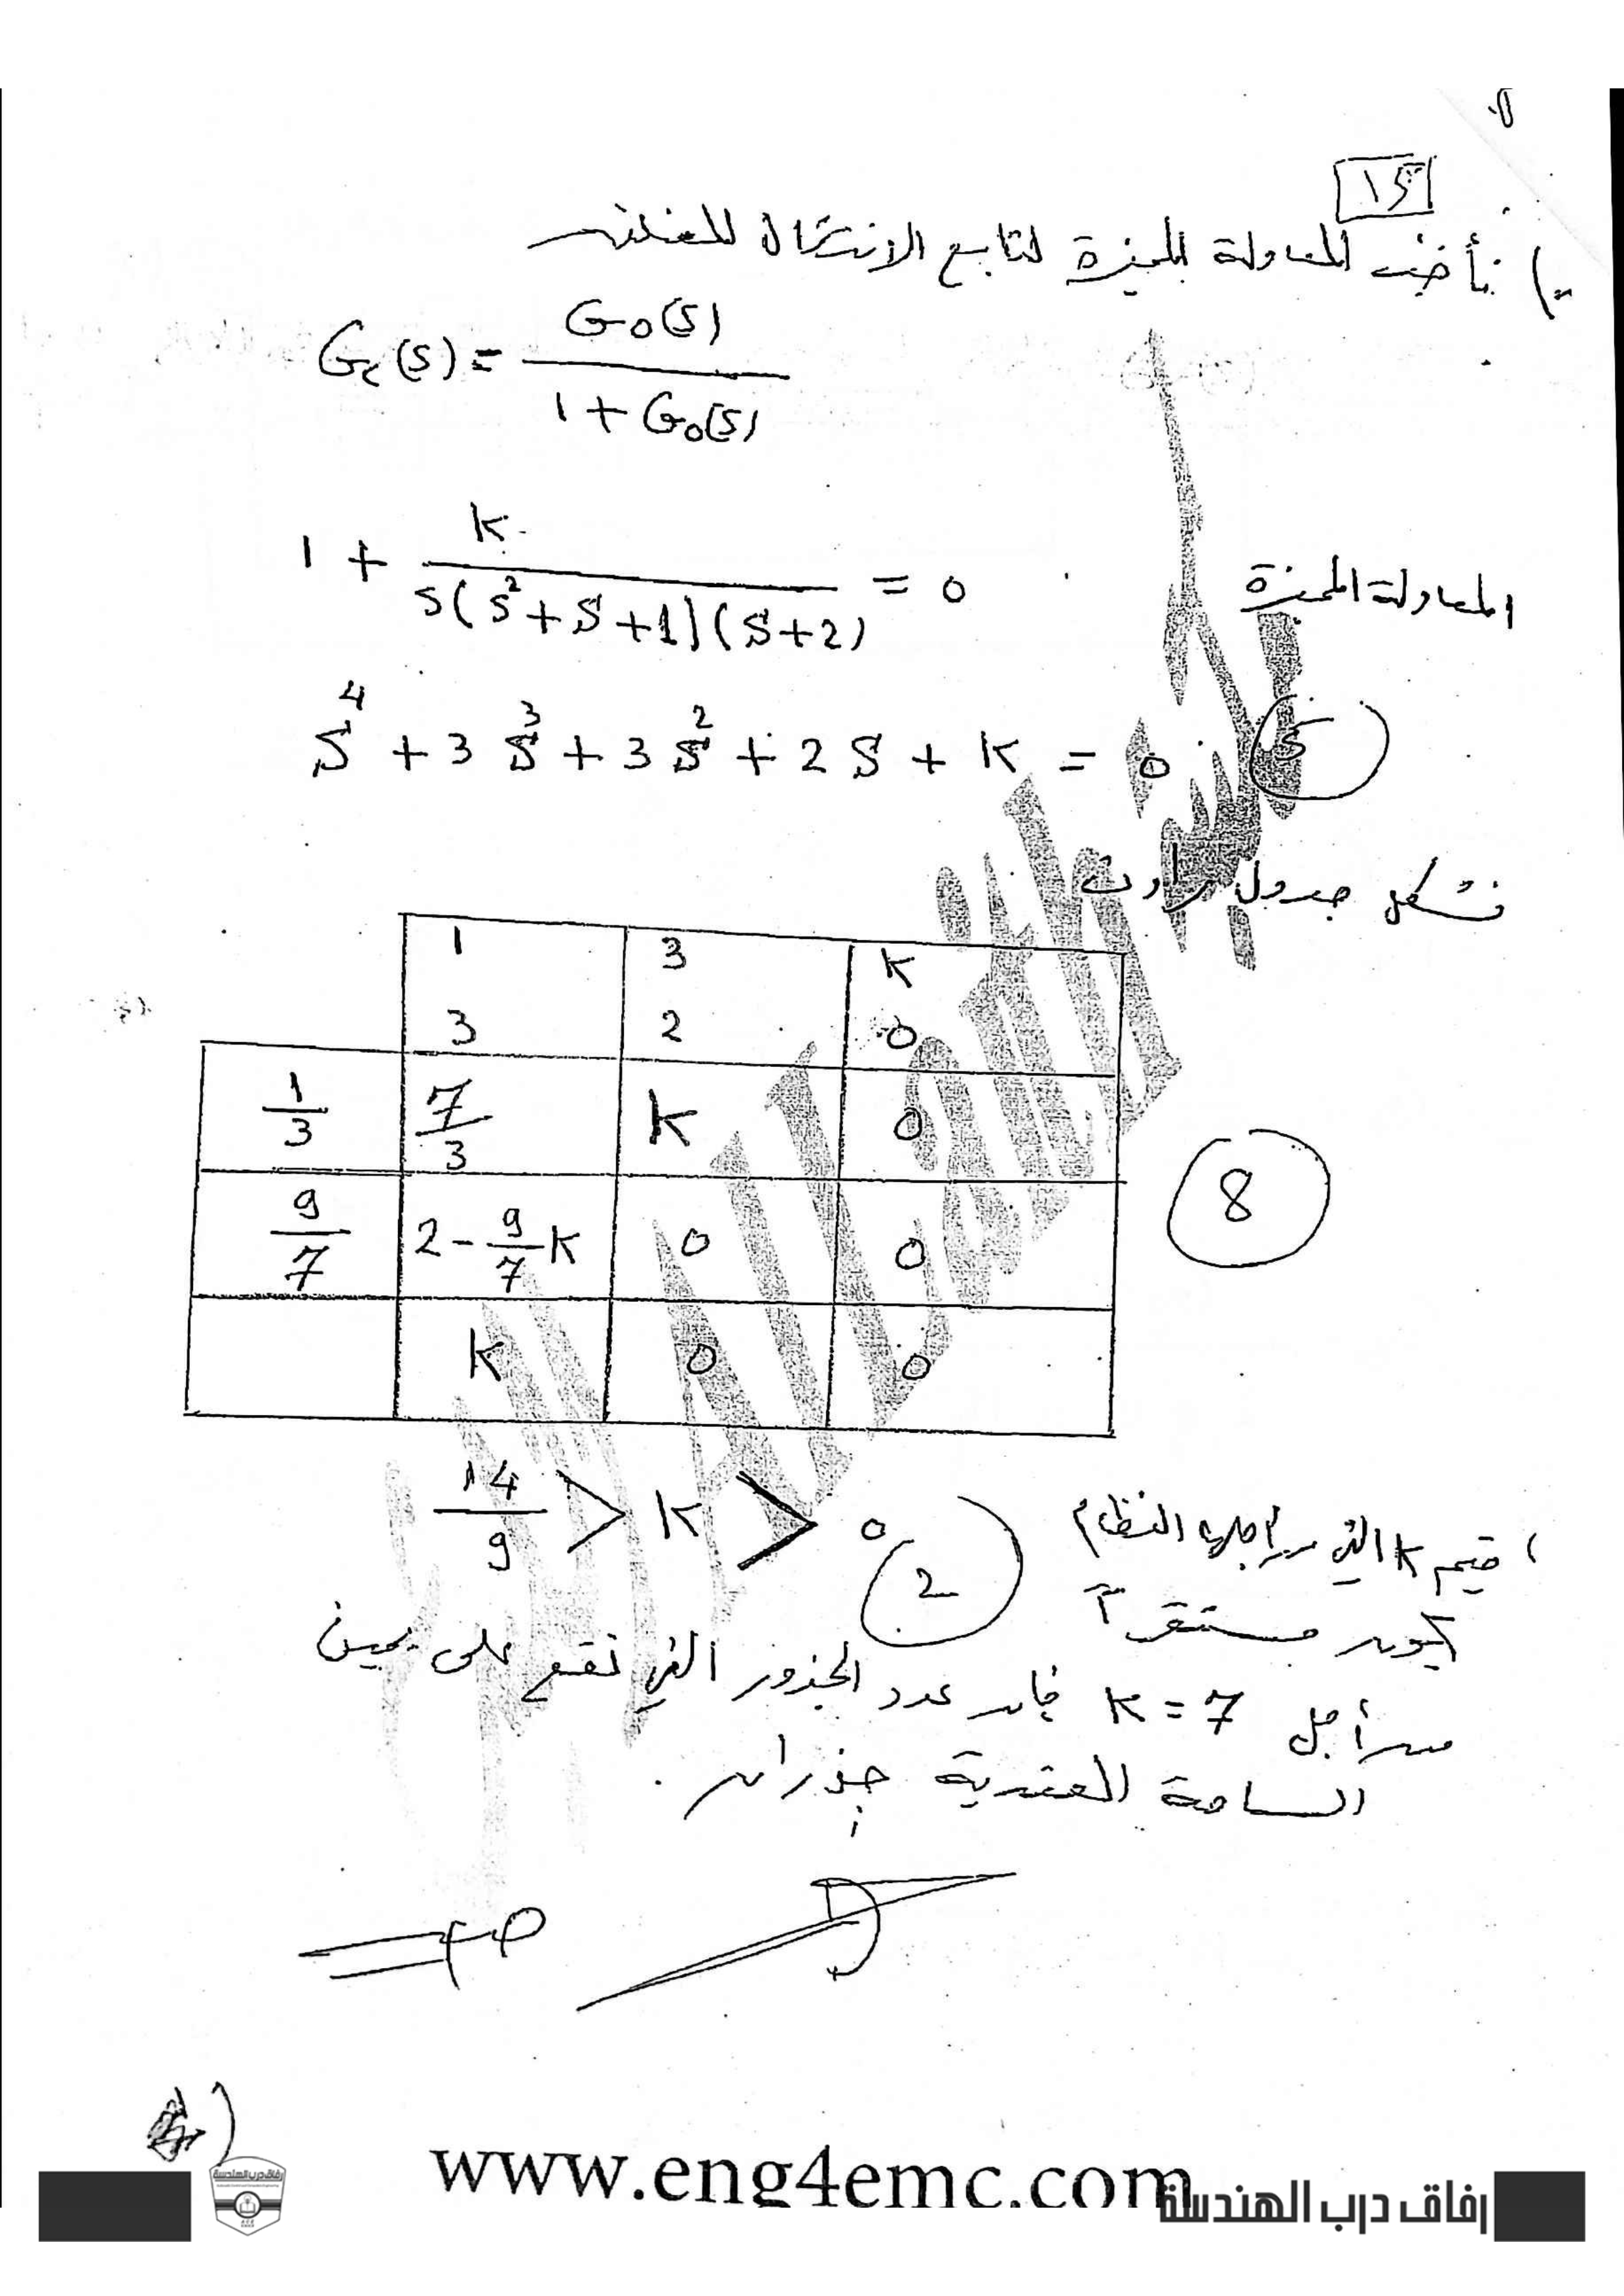 15
ب) نأخذ المعادلة المميزة لتابع الانتقال المغلق
Gc(s) = G0(s) / 1 + G0(s)
المعادلة المميزة 1 + K / s(s²+s+1)(s+2) = 0
s⁴ + 3s³ + 3s² + 2s + K = 0 5
نشكل جدول راوث
1 3 K
3 2 0
1/3 7/3 K 0
9/7 2 - 9/7 K 0 0
8
K 0 0
قيم K التي من أجلها النظام 14/9 > K > 0
يكون مستقراً 2
من أجل K = 7 فإن عدد الجذور التي تقع على يمين
الساحة العقدية جذران.
www.eng4emc.com
رفاق درب الهندسة